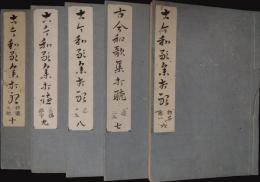 古今和歌集打聴 六
古今和歌集打聴 七
古今和歌集打聴 八
古今和歌集打聴 九
古今和歌集打聴 十